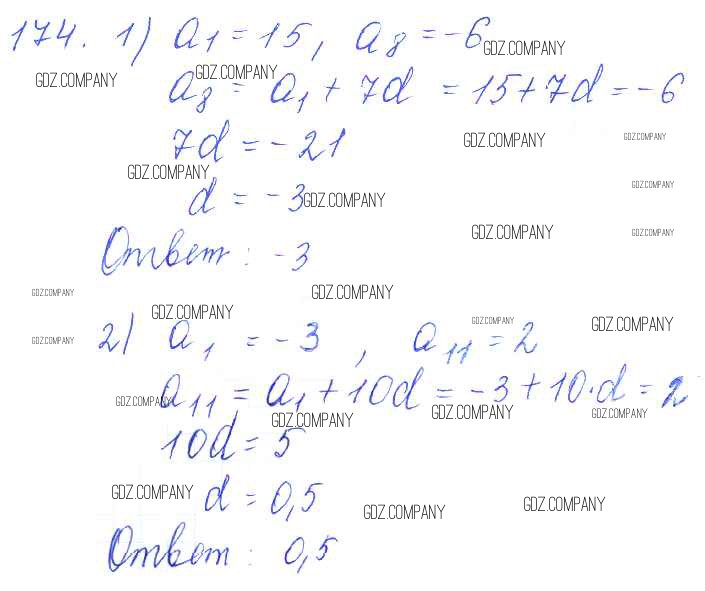 174. 1) a₁ = 15, a₈ = -6 GDZ.COMPANY
GDZ.COMPANY GDZ.COMPANY
a₈ = a₁ + 7d = 15 + 7d = -6
7d = -21 GDZ.COMPANY GDZ.COMPANY
GDZ.COMPANY GDZ.COMPANY
d = -3 GDZ.COMPANY
GDZ.COMPANY GDZ.COMPANY
Ответ: -3
GDZ.COMPANY GDZ.COMPANY
GDZ.COMPANY GDZ.COMPANY GDZ.COMPANY
GDZ.COMPANY 2) a₁ = -3, a₁₁ = 2
GDZ.COMPANY a₁₁ = a₁ + 10d = -3 + 10·d = 2
GDZ.COMPANY GDZ.COMPANY GDZ.COMPANY
10d = 5
GDZ.COMPANY d = 0,5 GDZ.COMPANY GDZ.COMPANY
Ответ: 0,5